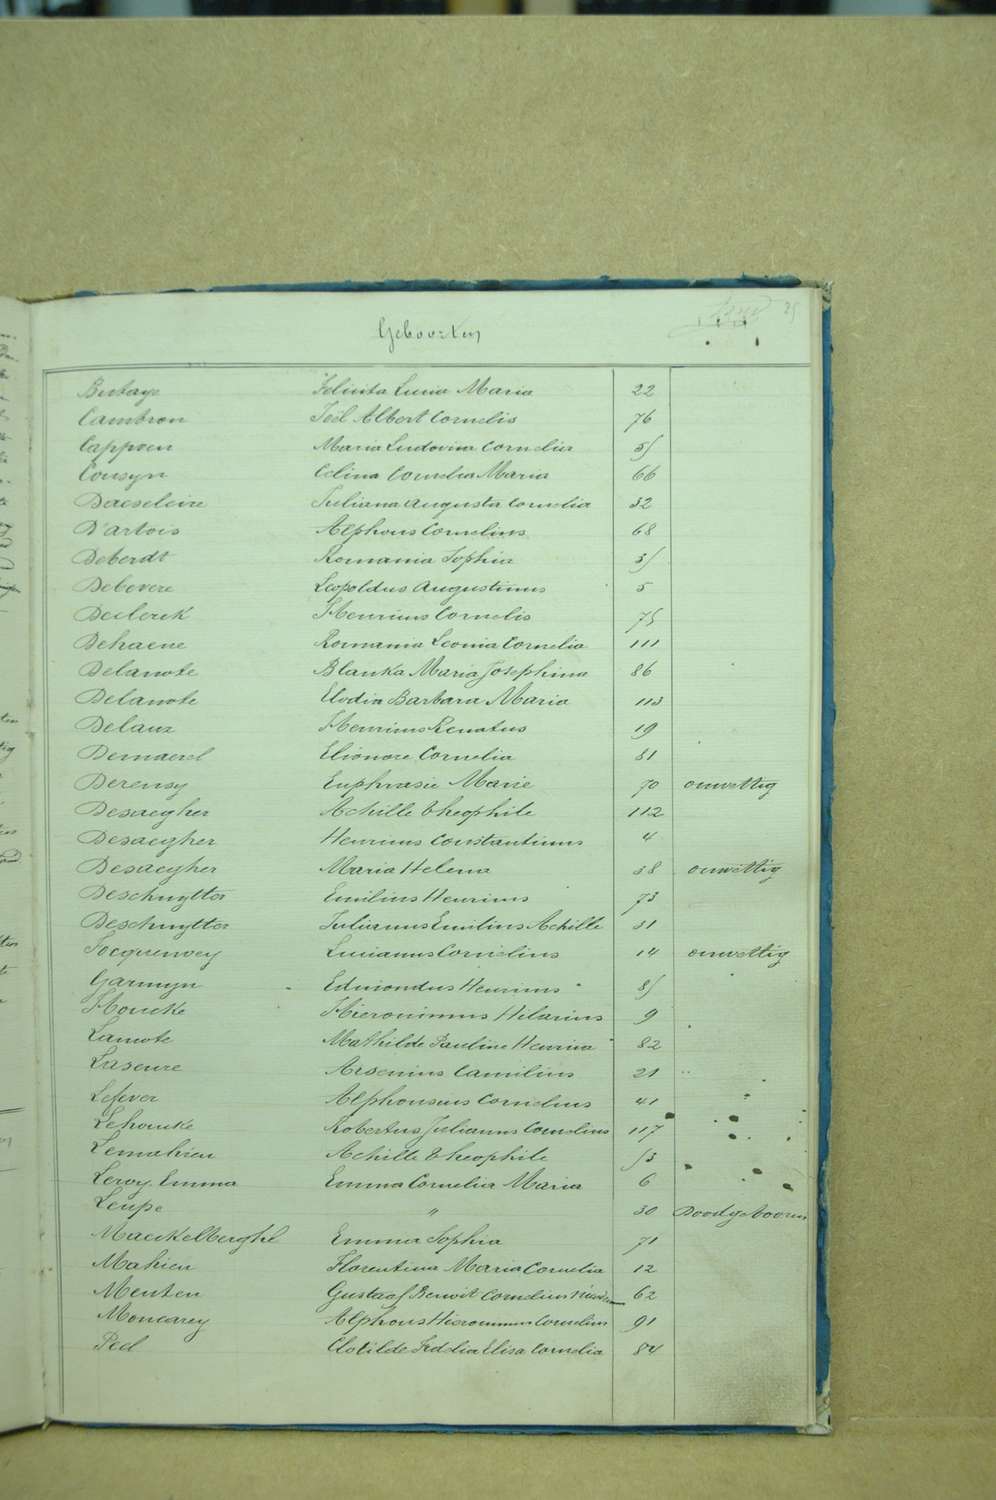 Geboorten
Butaye Felicita Lucia Maria 22
Cambron Joël Albert Cornelis 76
Cappoen Maria Ludovica Cornelia 55
Cousyn Celina Cornelia Maria 66
Daeseleire Juliana Augusta Cornelia 32
D'artois Alphons Cornelius 68
Deberdt Romania Sophia 35
Debevere Leopoldus Augustinus 5
Declerck Henricus Cornelis 75
Dehaene Romania Leonia Cornelia 111
Delanote Blanka Maria Josephina 86
Delanote Elodia Barbara Maria 113
Delaux Henricus Renatus 19
Demaerel Elionore Cornelia 81
Derensy Euphrasie Marie 70 onwettig
Desaegher Achille Theophile 112
Desaegher Henricus Constantinus 4
Desaegher Maria Helena 38 onwettig
Deschuytter Emilius Henricus 73
Deschuytter Julianus Emilius Achille 31
Jocquenvey Lucianus Cornelius 14 onwettig
Garmyn Edmondus Henricus 85
Houcke Hieronimus Hilarius 9
Lamote Mathilde Pauline Henrica 82
Laseure Arsenius Camilius 21
Lefever Alphonsus Cornelius 41
Lehoucke Robertus Julianus Cornelius 117
Lemahieu Achille Theophile 53
Leroy. Emma Emma Cornelia Maria 6
Leupe " 30 Doodgeboren
Maeckelberghe Emma Sophia 71
Mahieu Florentina Maria Cornelia 12
Menten Gustaaf Benoit Cornelius 62
Moncarey Alphons Hieronimus Cornelius 91
Peel Clotilde Fidelia Elisa Cornelia 84